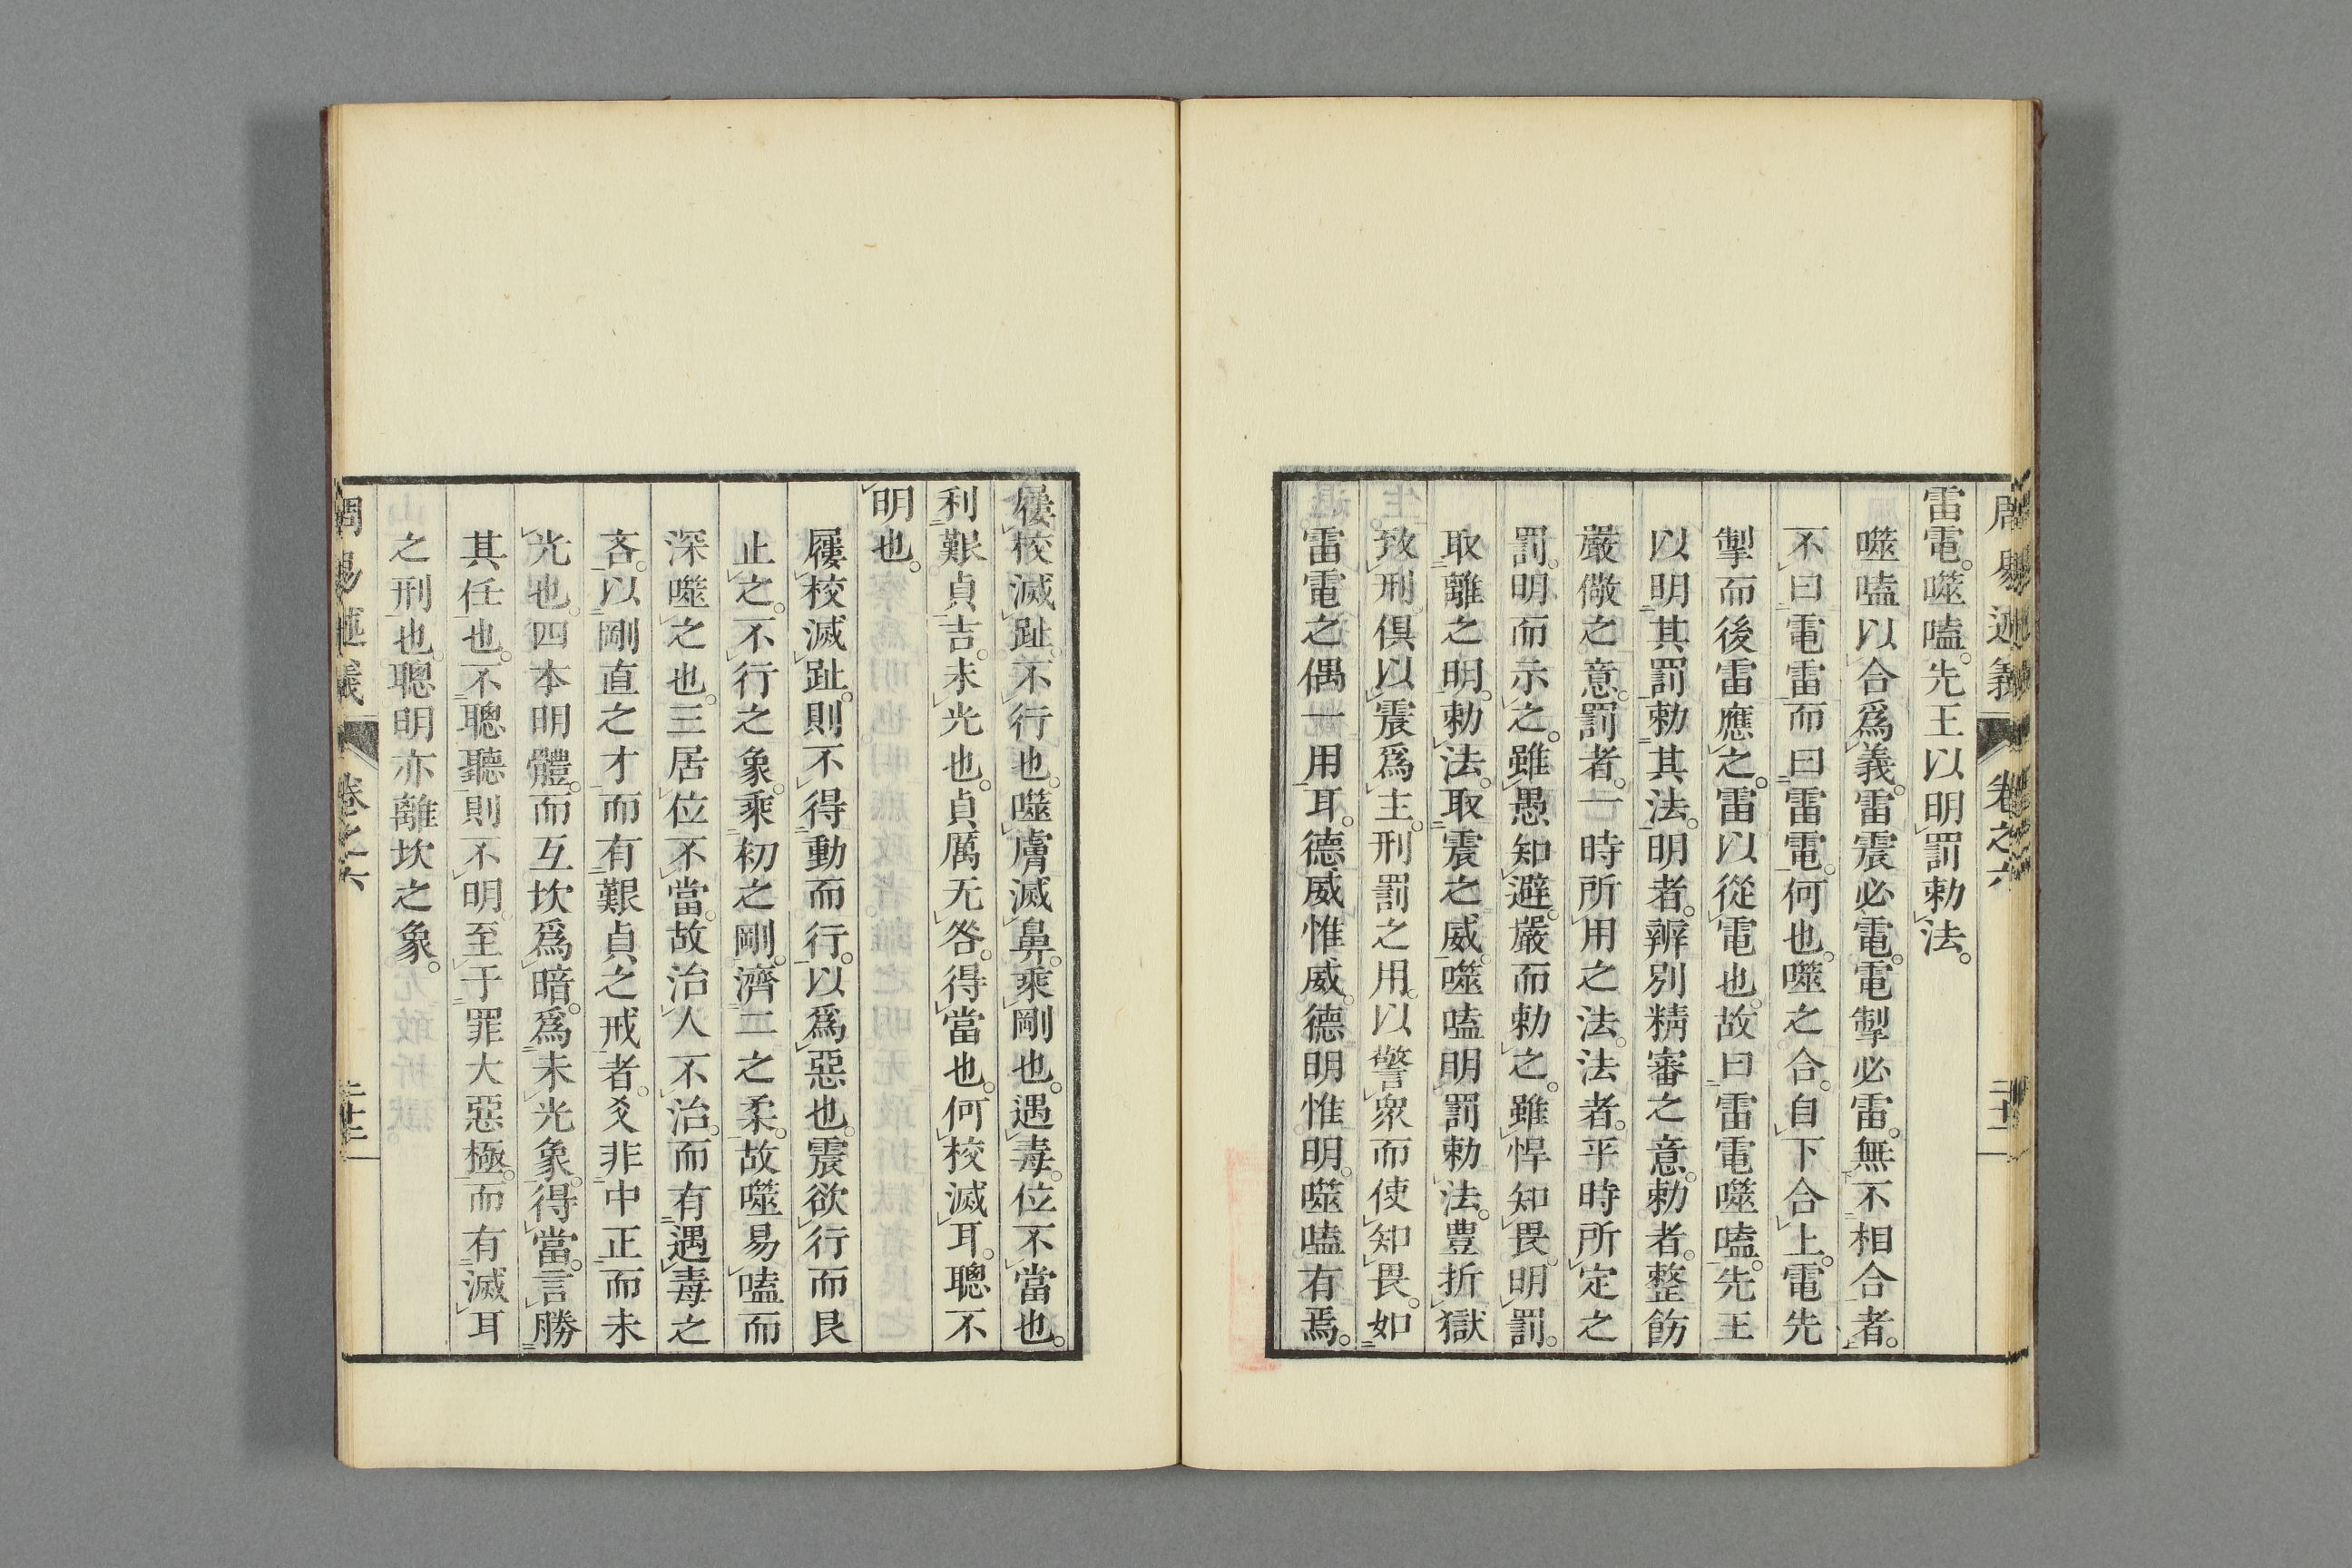 周易述義　卷之六　二十二
雷電。噬嗑。先王以明罰勅法。
噬嗑以合爲義。雷震必電。電掣必雷。無不相合者。
不曰電雷而曰雷電。何也。噬之合。自下合上。電先
掣而後雷應之。雷以從電也。故曰雷電噬嗑。先王
以明其罰勅其法。明者。辨別精審之意。勅者。整飭
嚴儆之意。罰者。一時所用之法。法者。平時所定之
罰。明而示之。雖愚知避。嚴而勅之。雖悍知畏。明罰。
取離之明。勅法。取震之威。噬嗑明罰勅法。豊折獄
致刑。俱以震爲主。刑罰之用。以警衆而使知畏。如
雷電之偶一用耳。德威惟威。德明惟明。噬嗑有焉。
屨校滅趾。不行也。噬膚滅鼻。乘剛也。遇毒。位不當也。
利艱貞吉。未光也。貞厲无咎。得當也。何校滅耳。聰不
明也。
屨校滅趾。則不得動而行。以爲惡也。震欲行而艮
止之。不行之象。乘初之剛。濟二之柔。故噬易嗑而
深噬之也。三居位不當。故治人不治。而有遇毒之
吝。以剛直之才。而有艱貞之戒者。爻非中正而未
光也。四本明體。而互坎爲暗。爲未光象。得當。言勝
其任也。不聰聽則不明。至于罪大惡極。而有滅耳
之刑也。聰明亦離坎之象。
周易述義　卷之六　二十三